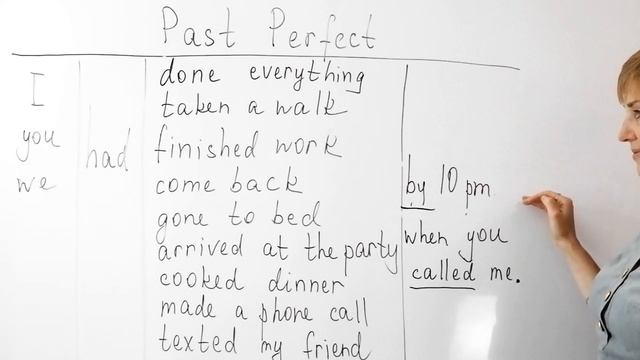 Past Perfect
I
you
we
had
done everything
taken a walk
finished work
come back
gone to bed
arrived at the party
cooked dinner
made a phone call
texted my friend
by 10 pm
when you
called me.